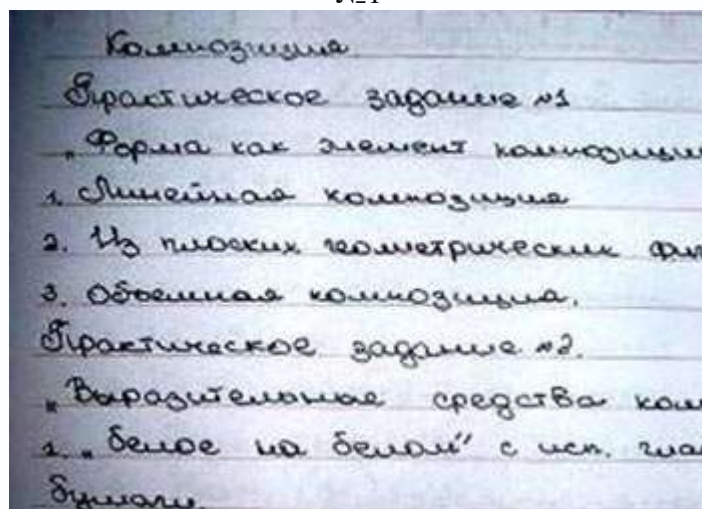 №1
Композиция
Практическое задание №1
„Форма как элемент композиции
1. Линейная композиция
2. Из плоских геометрических фиг
3. Объемная композиция.
Практическое задание №2.
„Выразительные средства ком
1. „белое на белом" с исп. гла
бумаги.